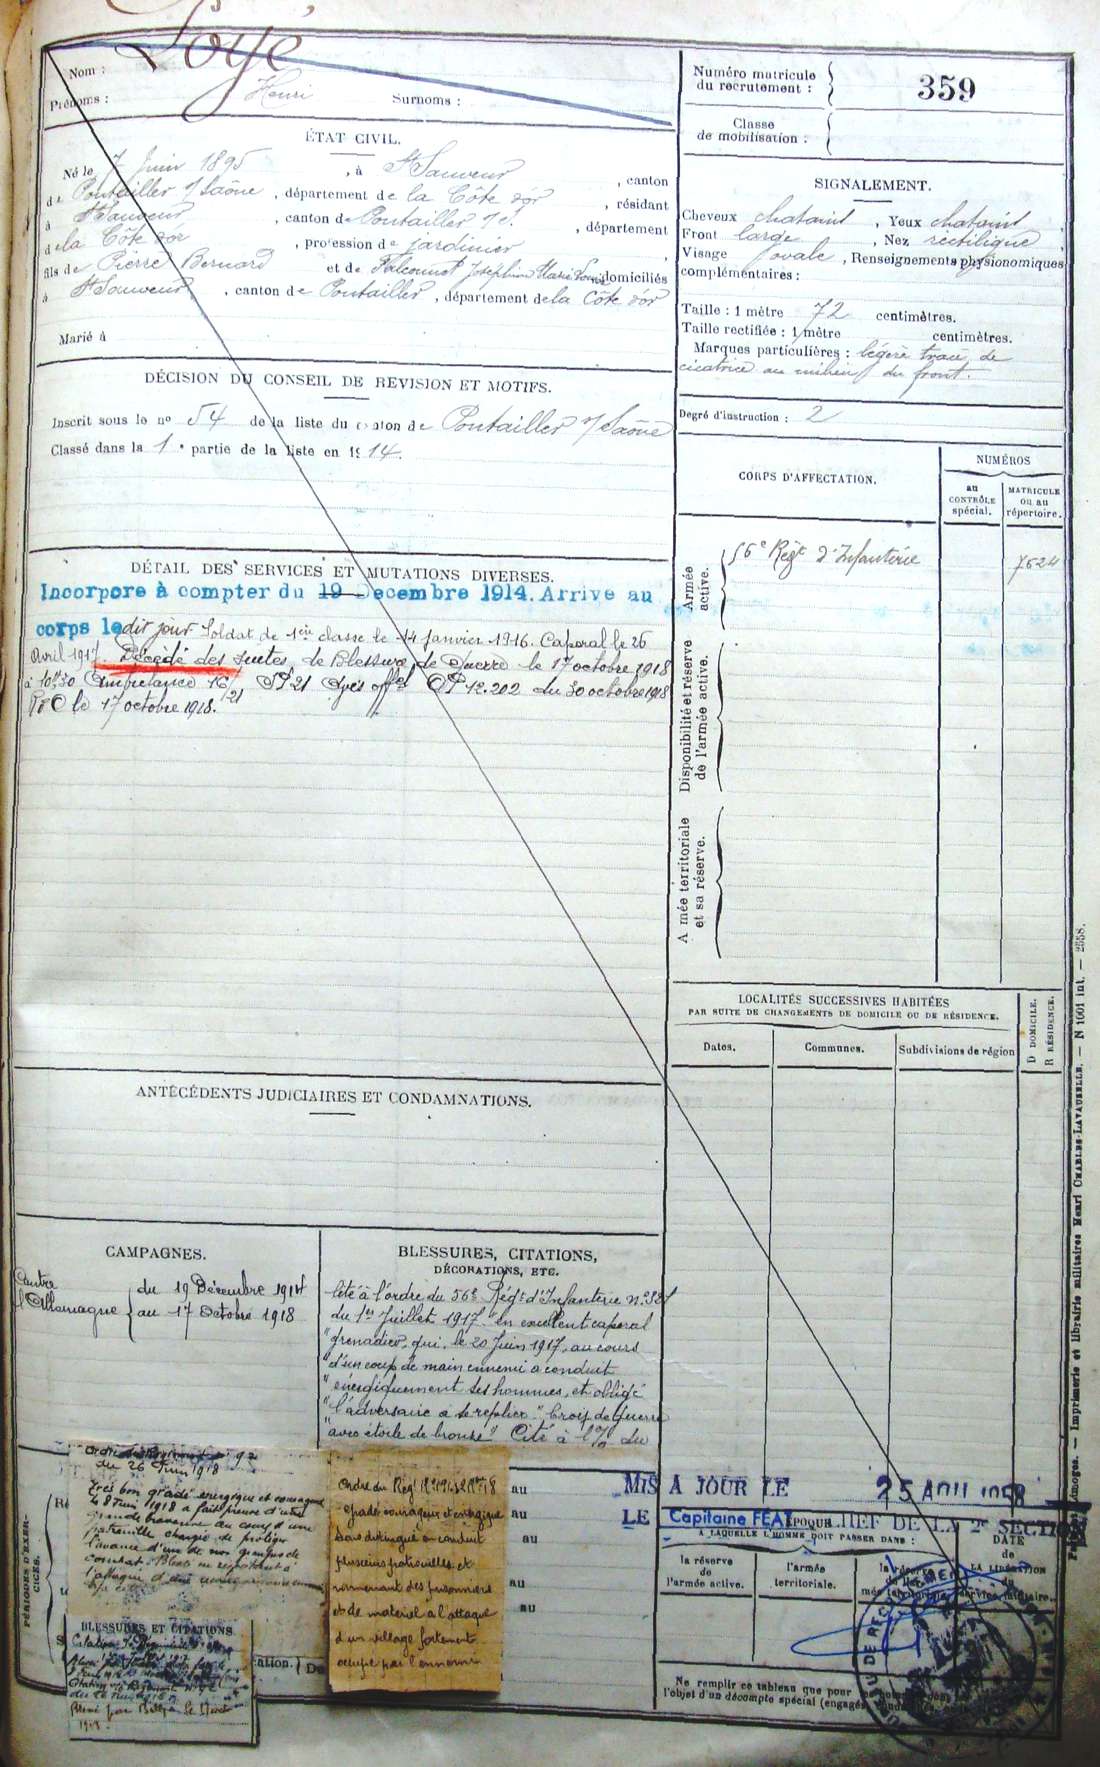 Nom : Loyé
Prénoms : Henri Surnoms :
Numéro matricule
du recrutement : 359
Classe
de mobilisation :
ÉTAT CIVIL.
Né le 7 Juin 1895, à St Sauveur, canton
de Pontailler s/ Saône, département de la Côte d'or, résidant
à St Sauveur, canton de Pontailler s/ S., département
de la Côte d'or, profession de jardinier,
fils de Pierre Bernard et de Falconnet Joséphine Marie domiciliés
à St Sauveur, canton de Pontailler, département de la Côte d'or
Marié à
SIGNALEMENT.
Cheveux chatains, Yeux chatains,
Front large, Nez rectiligne,
Visage ovale, Renseignements physionomiques
complémentaires :
Taille : 1 mètre 72 centimètres.
Taille rectifiée : 1 mètre centimètres.
Marques particulières : légère trace de
cicatrice au milieu du front.
Degré d'instruction : 2
DÉCISION DU CONSEIL DE REVISION ET MOTIFS.
Inscrit sous le nº 54 de la liste du canton de Pontailler s/ Saône
Classé dans la 1e partie de la liste en 1914.
CORPS D'AFFECTATION.
NUMÉROS
au
CONTRÔLE
spécial.
MATRICULE
ou au
répertoire.
Armée
active.
56e Régt d'Infanterie 7624
Disponibilité et réserve
de l'armée active.
Armée territoriale
et sa réserve.
DÉTAIL DES SERVICES ET MUTATIONS DIVERSES.
Incorporé à compter du 19 Decembre 1914. Arrivé au
corps le dit jour Soldat de 1ère classe le 14 Janvier 1916. Caporal le 26
Avril 1917. Décédé des suites de Blessure de Guerre le 17 octobre 1918
à 10h30 Ambulance 16/21 SP 21 Avis offel OP 12.202 du 30 octobre 1918
le 17 octobre 1918.
LOCALITÉS SUCCESSIVES HABITÉES
PAR SUITE DE CHANGEMENTS DE DOMICILE OU DE RÉSIDENCE.
Dates. Communes. Subdivisions de région
D DOMICILE.
R RÉSIDENCE.
ANTÉCÉDENTS JUDICIAIRES ET CONDAMNATIONS.
CAMPAGNES.
Contre
l'Allemagne
du 19 Décembre 1914
au 17 Octobre 1918
BLESSURES, CITATIONS,
DÉCORATIONS, ETC.
Cité à l'ordre du 56e Régt d'Infanterie n°
du 1er Juillet 1917. "un excellent caporal
"grenadier, qui, le 20 Juin 1917, au cours
"d'un coup de main ennemi a conduit
"énergiquement ses hommes, et obligé
"l'adversaire à se replier." Croix de Guerre
avec étoile de bronze" Cité à du
Ordre du Régiment n° 92
du 26 Juin 1918
Très bon gradé énergique et courageux
le 8 Juin 1918 a fait preuve d'une
grande bravoure au cours d'une
patrouille chargée de protéger
l'avance d'un de nos groupes de
combat. Blessé
BLESSURES ET CITATIONS
Ordre du Régt
gradé courageux et énergique
s'est distingué en conduit
plusieurs patrouilles et
ramenant des prisonniers
et de materiel à l'attaque
d'un village fortement
occupé par l'ennemi
PÉRIODES D'EXERCICES.
au
au
au
au
au
MIS A JOUR LE 25
LE Capitaine CHEF DE LA 2e SECTION
ÉPOQUE
A LAQUELLE L'HOMME DOIT PASSER DANS :
la réserve
de
l'armée active.
l'armée
territoriale.
DATE
de
LA LIBÉRATION
du
service militaire.
Ne remplir ce tableau que pour
l'objet d'un décompte spécial (engagés
Limoges. — Imprimerie et librairie militaires Henri CHARLES-LAVAUZELLE. — N 1001 int. — 2558.